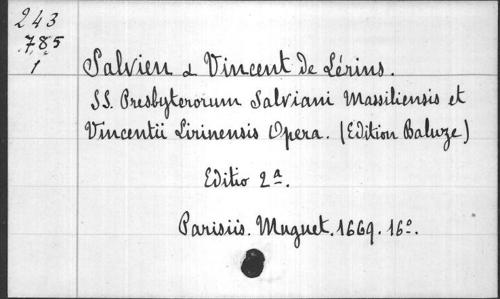 243
785
1
Salvien & Vincent de Lérins.
SS. Presbyterorum Salviani Massiliensis et
Vincentii Lirinensis Opera. (Edition Baluze)
Editio 2ª.
Parisiis. Muguet. 1669. 16º.